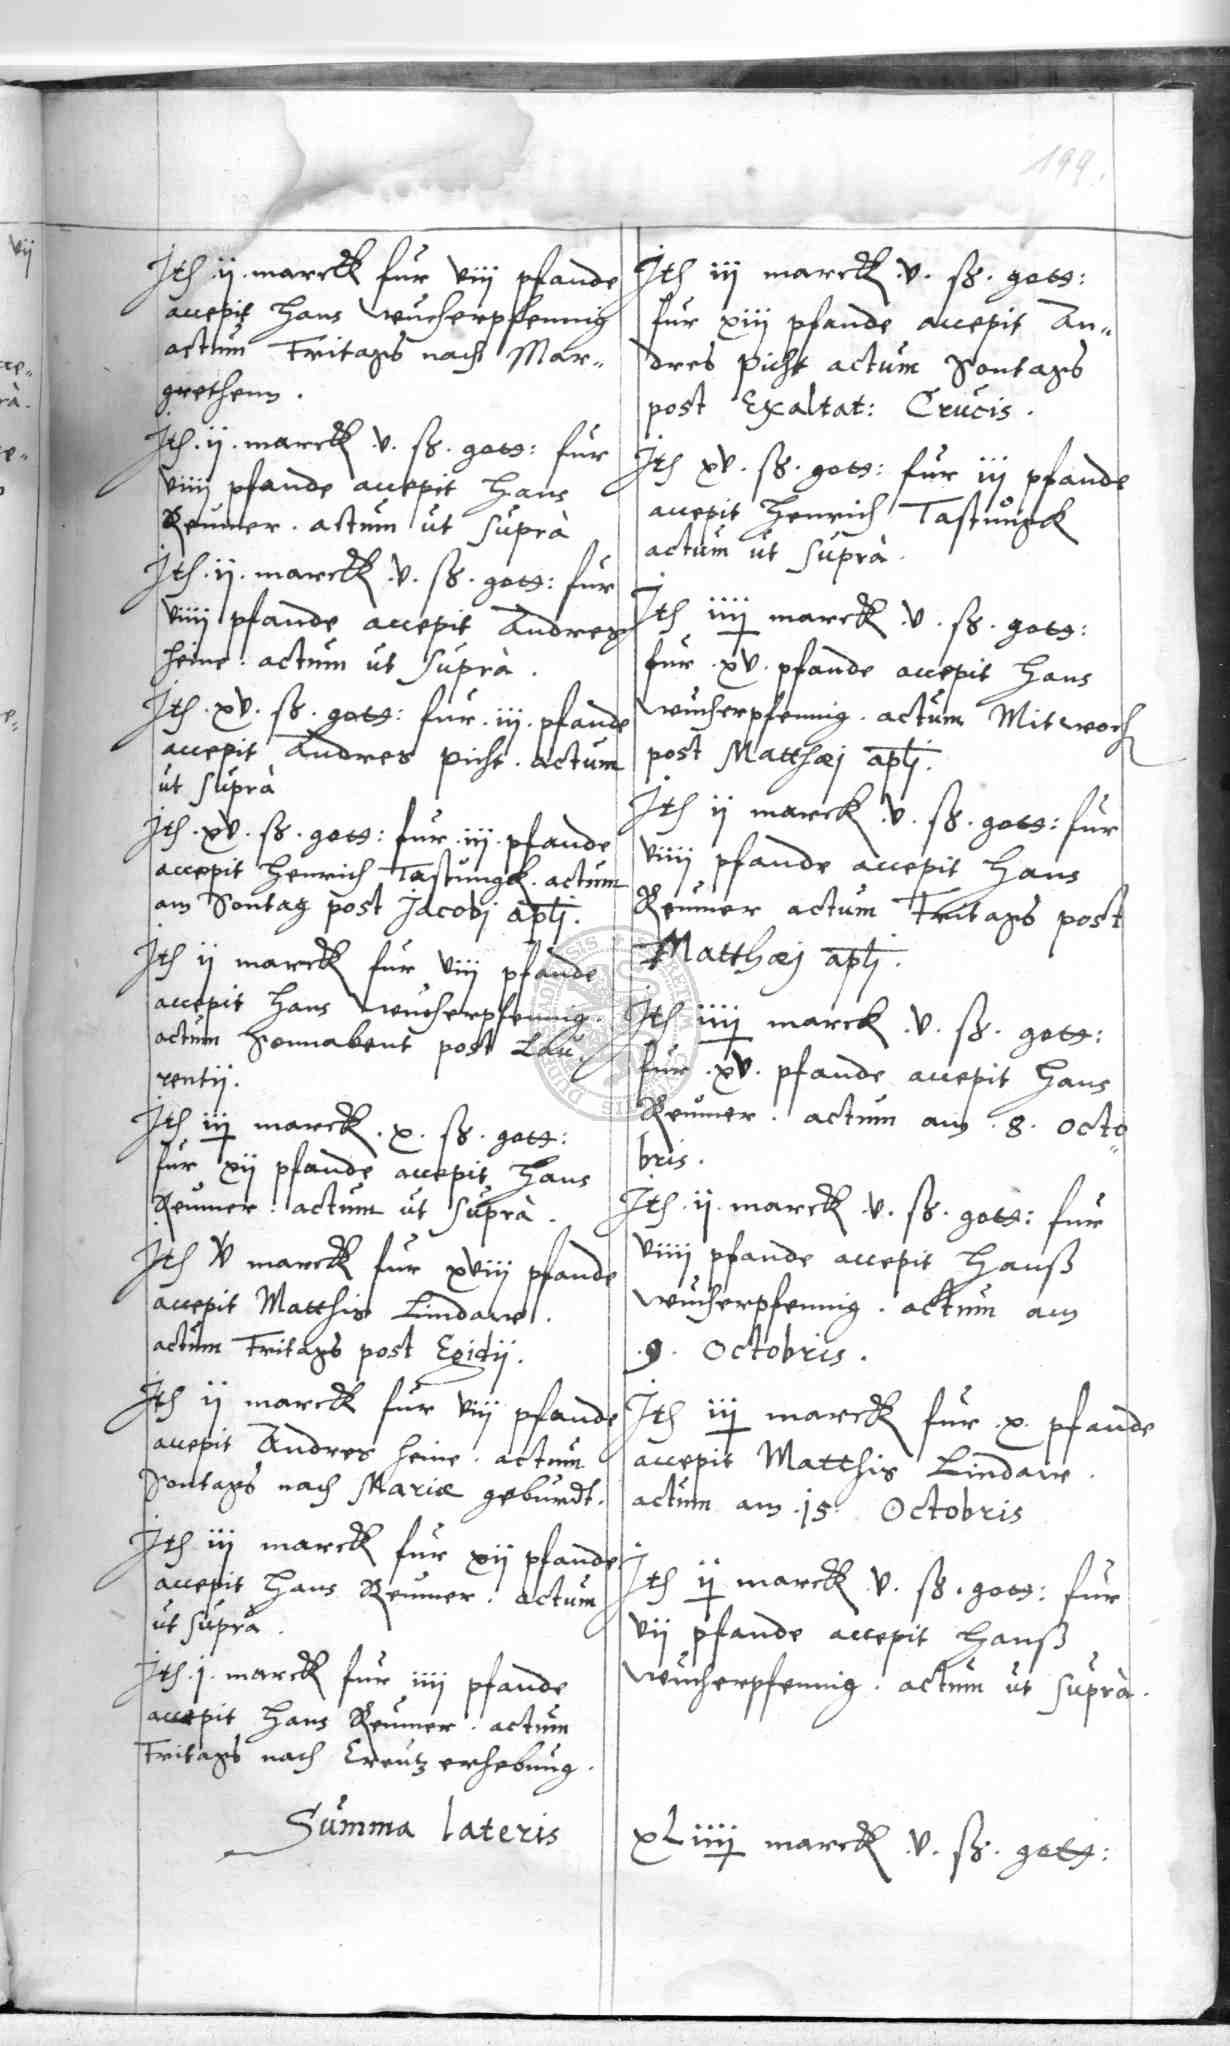 199.
Jth .ii. marckk fur viii pfande
accepit Hans Wucherpfennig
actum Fritags nach Mar„
grethenn .
Jth .ii. marckk .v. ß. gotts: fur
viiii pfande accepit Hans
Reumer . actum ut suprà
Jth .ii. marckk .v. ß. gotts: fur
viiii pfande accepit Andres
Heine . actum ut suprà .
Jth .xv. ß. gotts: fur .iii. pfande
accepit Andres Picht . actum
ut suprà
Jth .xv. ß. gotts: fur .iii. pfande
accepit Henrich Tastungk . actum
am Sontag post Jacobj aplj .
Jth ii marckk fur viii pfande
accepit Hans Wucherpfennig .
actum Sonnabent post Lau„
rentij .
Jth iii marckk .x. ß. gotts:
fur xii pfande accepit Hans
Reumer . actum ut suprà .
Jth V marckk fur xviii pfande
accepit Matthis Lindawe .
actum Fritags post Egidij .
Jth ii marckk fur viii pfande
accepit Andres Heine . actum
Sontags nach Mariæ geburdt .
Jth iii marckk fur xii pfande
accepit Hans Reumer . actum
ut suprà .
Jth .j. marckk fur iiii pfande
accepit Hans Reumer . actum
Fritags nach Creutz erhebung .
Summa lateris
Jth iii marckk .v. ß. gotts:
fur xiii pfande accepit An„
dres Picht actum Sontags
post Exaltat: Crucis .
Jth xv. ß. gotts: fur iii pfande
accepit Henrich Tastungk
actum ut suprà .
Jth iiii marckk .v. ß. gotts:
fur .xv. pfande accepit Hans
Wucherpfennig . actum Mitwoch
post Matthæj aplj .
Jth ii marckk .v. ß. gotts: fur
viiii pfande accepit Hans
Reumer actum Fritags post
Matthæj aplj .
Jth iiii marckk .v. ß. gotts:
fur .xv. pfande accepit Hans
Reumer . actum am .8. Octo„
bris .
Jth .ii. marckk .v. ß. gotts: fur
viiii pfande accepit Hanß
Wucherpfennig . actum am
.9. Octobris .
Jth iii marckk fur .x. pfande
accepit Matthis Lindawe .
actum am .15. Octobris
Jth ii marckk .v. ß. gotts: fur
vii pfande accepit Hanß
Wucherpfennig . actum ut suprà .
xLiiii marckk .v. ß. gotts: